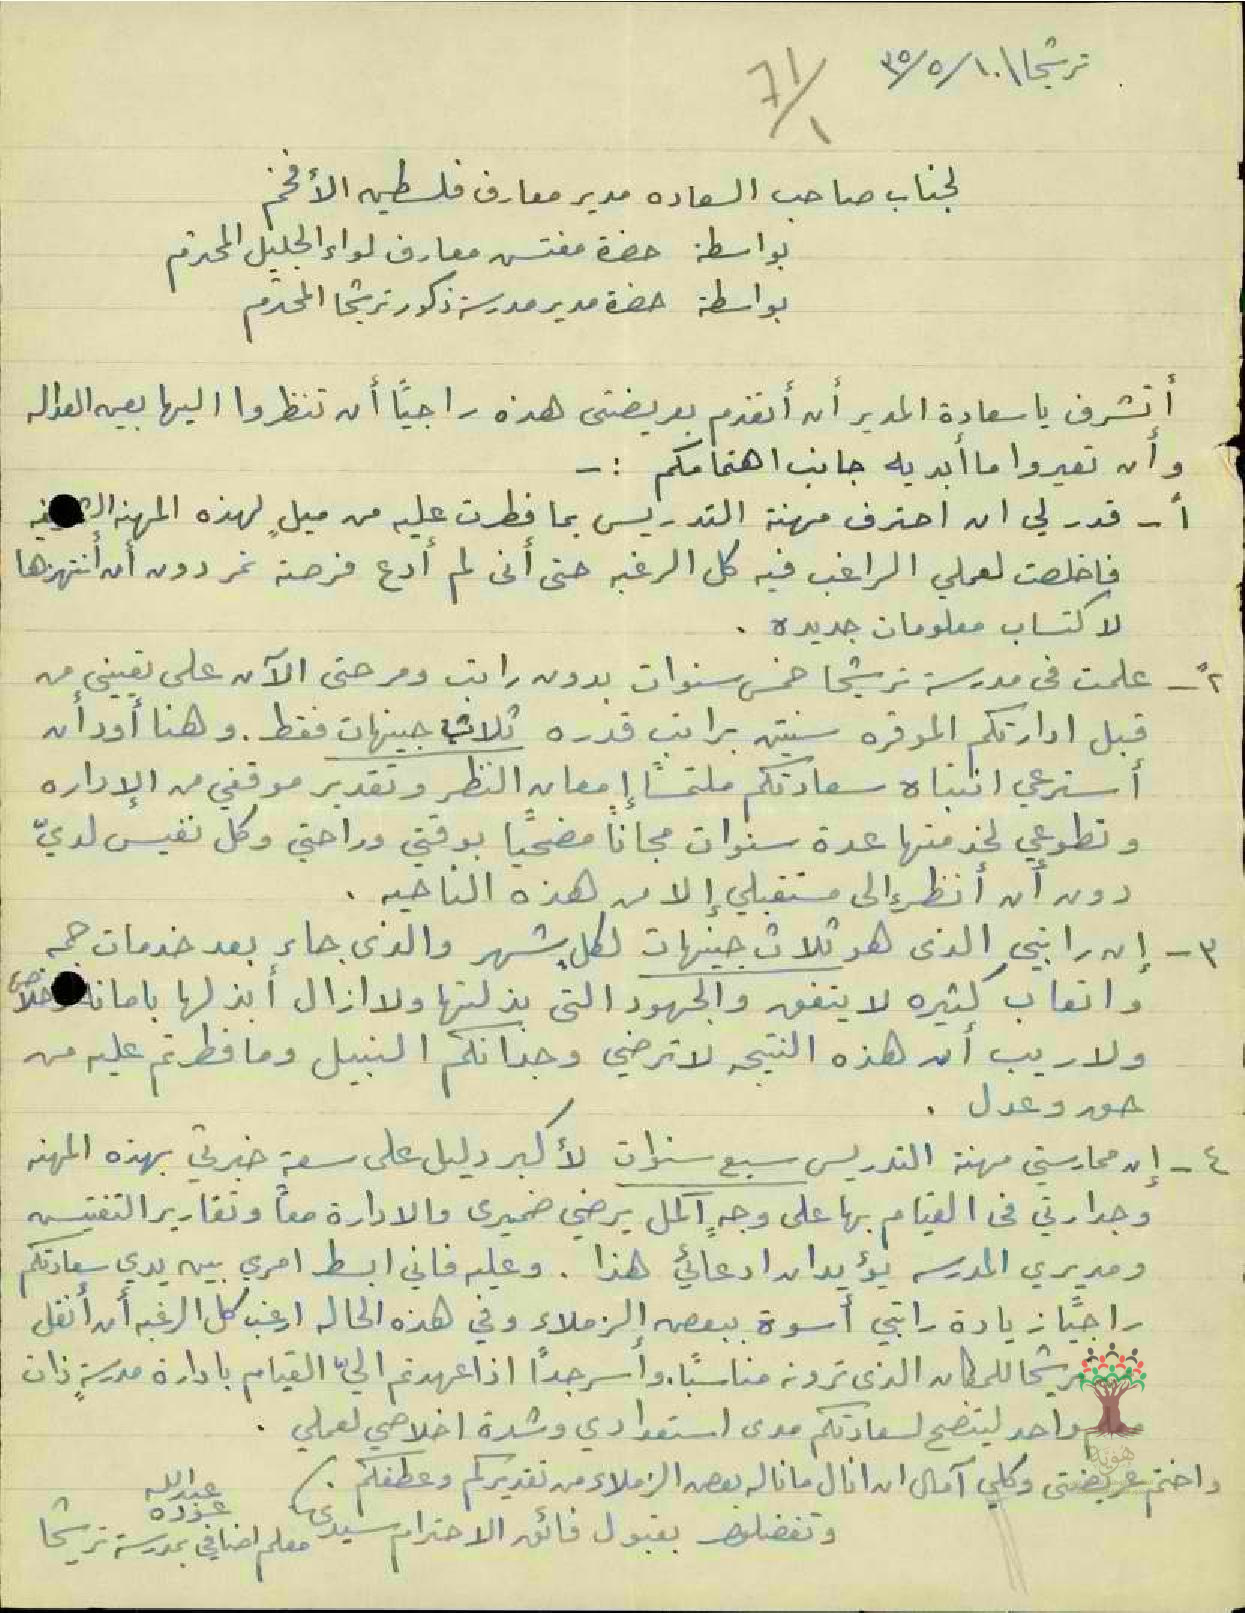 ترشيحا ١٠/٥/٣٥
٦١/١
لجناب صاحب السعاده مدير معارف فلسطين الأفخم
بواسطة حضرة مفتش معارف لواء الجليل المحترم
بواسطة حضرة مدير مدرسة ذكور ترشيحا المحترم
أتشرف يا سعادة المدير أن أتقدم بعريضتي هذه راجيًا أن تنظروا اليها بعين العداله
وأن تعيروا ما أبديه جانب اهتمامكم :-
أ- قدر لي ان احترف مهنة التدريس بما فطرت عليه من ميلٍ لهذه المهنه
فاخلصت لعملي الراغب فيه كل الرغبه حتى أني لم أدع فرصة تمر دون أن أنتهزها
لاكتساب معلومات جديده .
٢- علمت في مدرسة ترشيحا خمس سنوات بدون راتب ومر حتى الآن على تعييني من
قبل ادارتكم الموقره سنتين براتب قدره ثلاث جينهات فقط . وهنا أود أن
أسترعي انتباه سعادتكم ملتمسًا إمعان النظر وتقدير موقفي من الإداره
وتطوعي لخدمتها عدة سنوات مجاناً مضحيًا بوقتي وراحتي وكل نفيس لديّ
دون أن أنظر إلى مستقبلي إلا من هذه الناحيه .
٣- إن راتبي الذي هو ثلاث جينهات لكل شهر والذي جاء بعد خدمات جمه
واتعاب كثيره لا يتفق والجهود التي بذلتها ولا ازال أبذلها بامانة
ولا ريب أن هذه النتيجه لا ترضي وجدانكم النبيل وما فطرتم عليه من
حق وعدل .
٤- إن ممارستي مهنة التدريس سبع سنوات لأكبر دليل على سعة خبرتي بهذه المهنه
وجدارتي في القيام بها على وجهٍ أكمل يرضي ضميري والادارة معاً وتقارير التفتيش
ومديري المدرسه يؤيدان ادعائي هذا . وعليه فاني ابسط امري بين يدي سعادتكم
راجيًا زيادة راتبي أسوة ببعض الزملاء وفي هذه الحاله ارغب كل الرغبه أن أنقل
ترشيحا للمكان الذي ترونه مناسبًا . وأسر جدًا اذا عهدتم اليّ القيام بادارة مدرسةٍ ذات
واحد ليتضح لسعادتكم مدى استعدادي وشدة اخلاصي لعملي .
واختم عريضتي وكلي آمال ان انال ما ناله بعض الزملاء من تقديركم وعطفكم .
وتفضلوا بقبول فائق الاحترام سيدي
عبدالله
معلم اضافي بمدرسة ترشيحا
هوية